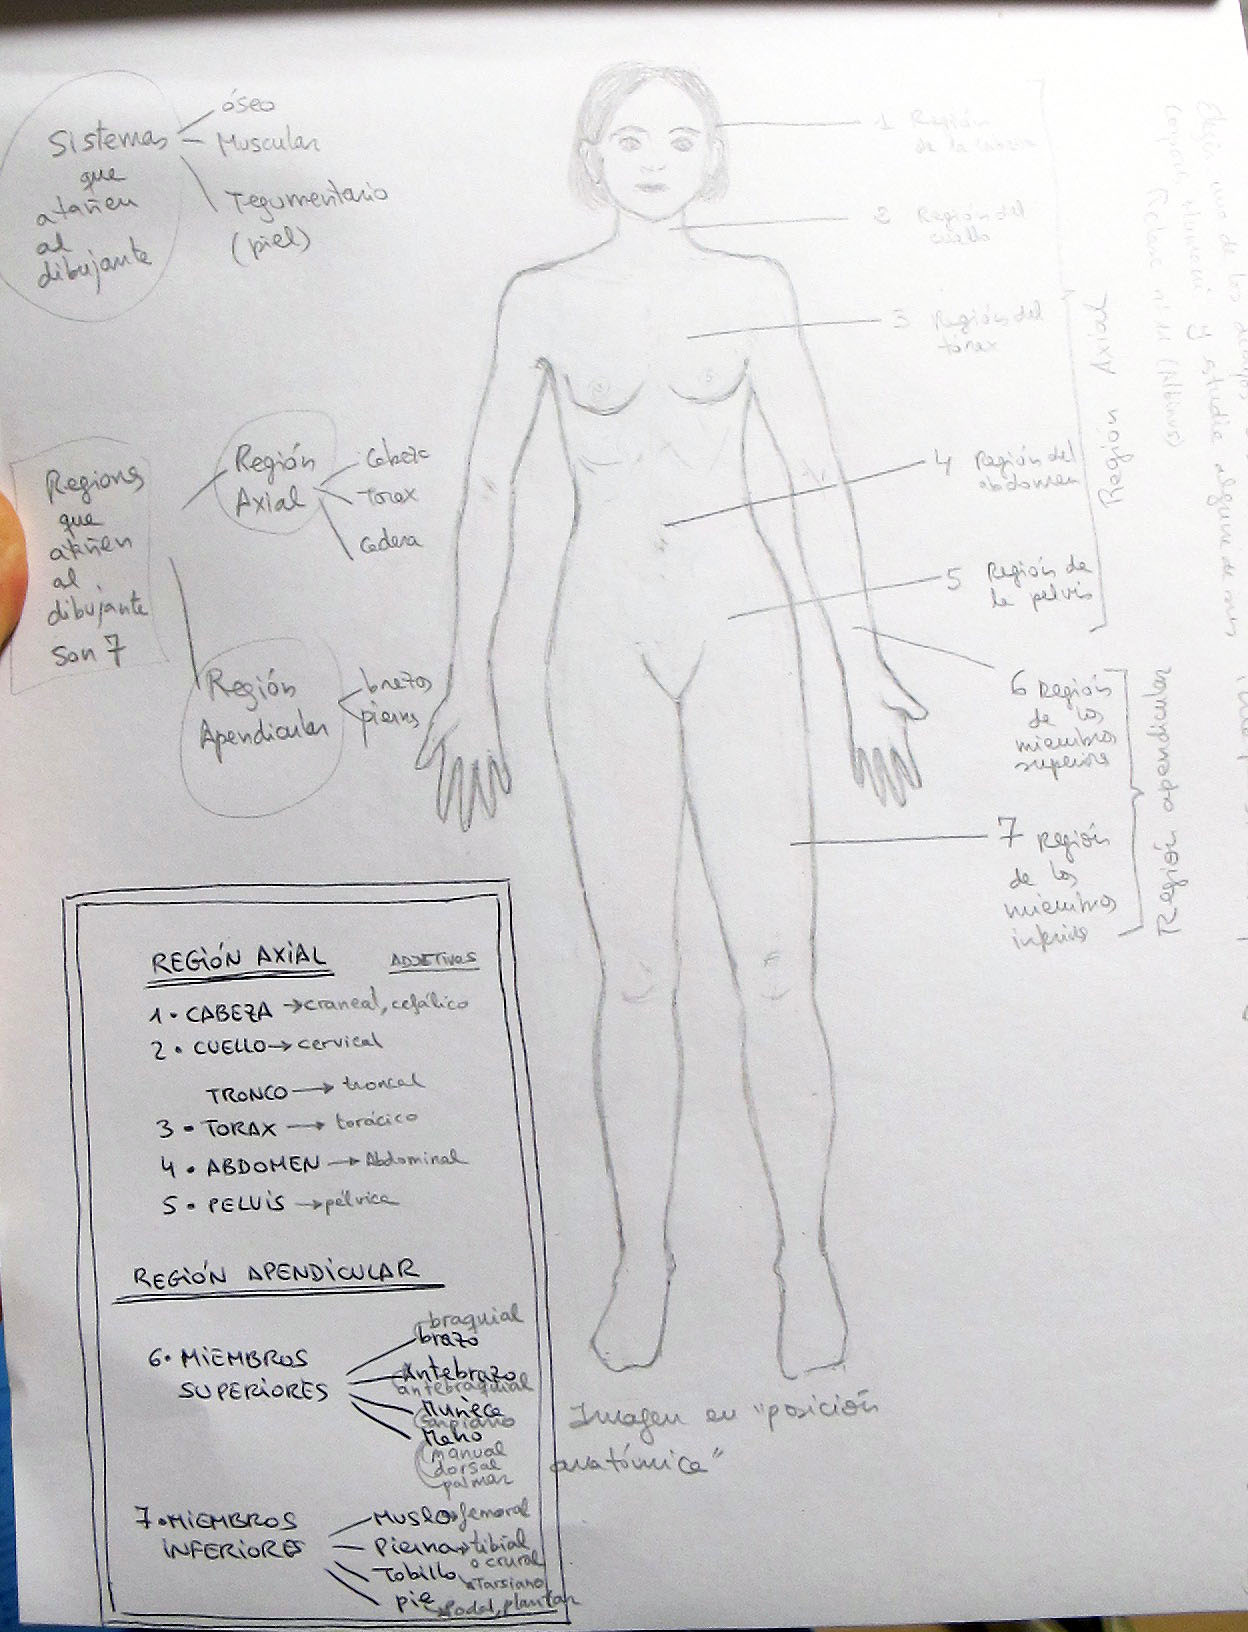 Sistemas
que
atañen
al
dibujante
óseo
Muscular
Tegumentario
(piel)
Regiones
que
atañen
al
dibujante
son 7
Región
Axial
Cabeza
Torax
Cadera
Región
Apendicular
brazos
piernas
1 Región
de la cabeza
2 Región del
cuello
3 Región del
tórax
4 Región del
abdomen
5 Región de
la pelvis
Región Axial
6 Región
de los
miembros
superiores
7 Región
de los
miembros
inferiores
Región apendicular
Elija uno de los dibujos
y estudie alguna de sus
Relave nº 11 (Albinus)
REGIÓN AXIAL
ADJETIVOS
1. CABEZA → craneal, cefálico
2. CUELLO → cervical
TRONCO → troncal
3. TORAX → torácico
4. ABDOMEN → Abdominal
5. PELVIS → pélvica
REGIÓN APENDICULAR
6. MIEMBROS
SUPERIORES
braquial
brazo
Antebrazo
antebraquial
Muñeca
carpiano
Mano
manual
dorsal
palmar
7. MIEMBROS
INFERIORES
Muslo → femoral
Pierna → tibial
o crural
Tobillo
Tarsiano
pie → Podal, plantar
Imagen en "posición
anatómica"